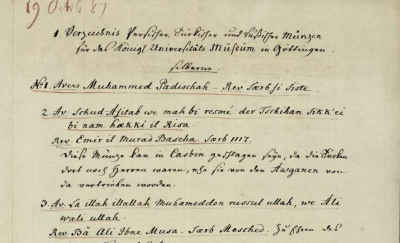 19 Octb 87
1. Verzeichnis Persischer, Türkischer und Russischer Münzen
für das Königl. Universitäts Museum in Göttingen.
silberne
No 1. Avers. Muhammed Padischah - Rev. Særb fi Siste.
2. Av. Schud Afitab we mah bi resmé der Tschihan Sikk'ei
bi nam hækki il Risa.
Rev. Emir il Murad Bascha. Særb 1117.
Diese Münze kan in Casbin geschlagen seÿn, da die Türken
dort noch Herren waren, ehe sie von den Awganen von
da vertrieben worden.
3. Av. La illah illallah Muhameddon russul ullah, we Ali
wali ullah.
Rev. Bä Ali Ibne Musa. Særb Mesched. Zu Ehren des